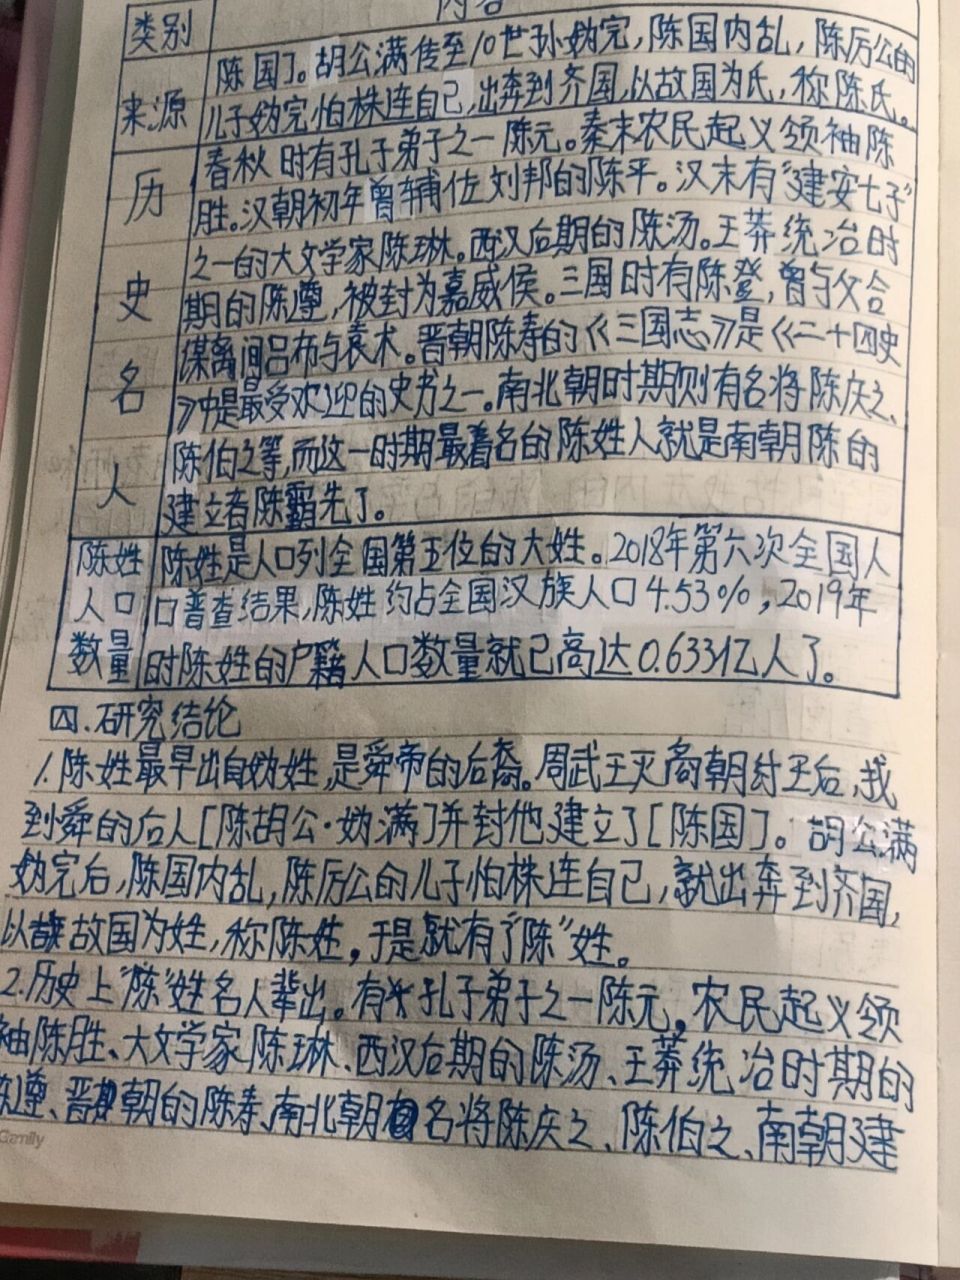 类别 内容
陈国]。胡公满传至10世孙妫完,陈国内乱,陈厉公的
来源 儿子妫完怕株连自己,出奔到齐国,以故国为氏,称陈氏。
春秋时有孔子弟子之一陈元。秦末农民起义领袖陈
历 胜。汉朝初年曾辅佐刘邦的陈平。汉末有“建安七子”
之一的大文学家陈琳。西汉后期的陈汤。王莽统治时
史 期的陈遵,被封为嘉威侯。三国时有陈登,曾与父合
谋离间吕布与袁术。晋朝陈寿的《三国志》是《二十四史
名 》中是最受欢迎的史书之一。南北朝时期则有名将陈庆之、
陈伯之等,而这一时期最着名的陈姓人就是南朝陈的
人 建立者陈霸先了。
陈姓 陈姓是人口列全国第五位的大姓。2018年第六次全国人
人口 口普查结果,陈姓约占全国汉族人口4.53%,2019年
数量 时陈姓的户籍人口数量就已高达0.633亿人了。
四.研究结论
1.陈姓最早出自妫姓,是舜帝的后裔。周武王灭商朝纣王后,找
到舜的后人[陈胡公·妫满]并封他建立了[陈国]。胡公满
妫完后,陈国内乱,陈厉公的儿子怕株连自己,就出奔到齐国,
以故国为姓,称陈姓,于是就有了“陈”姓。
2.历史上“陈”姓名人辈出。有孔子弟子之一陈元,农民起义领
袖陈胜、大文学家陈琳、西汉后期的陈汤、王莽统治时期的
陈遵、晋朝的陈寿、南北朝名将陈庆之、陈伯之、南朝建